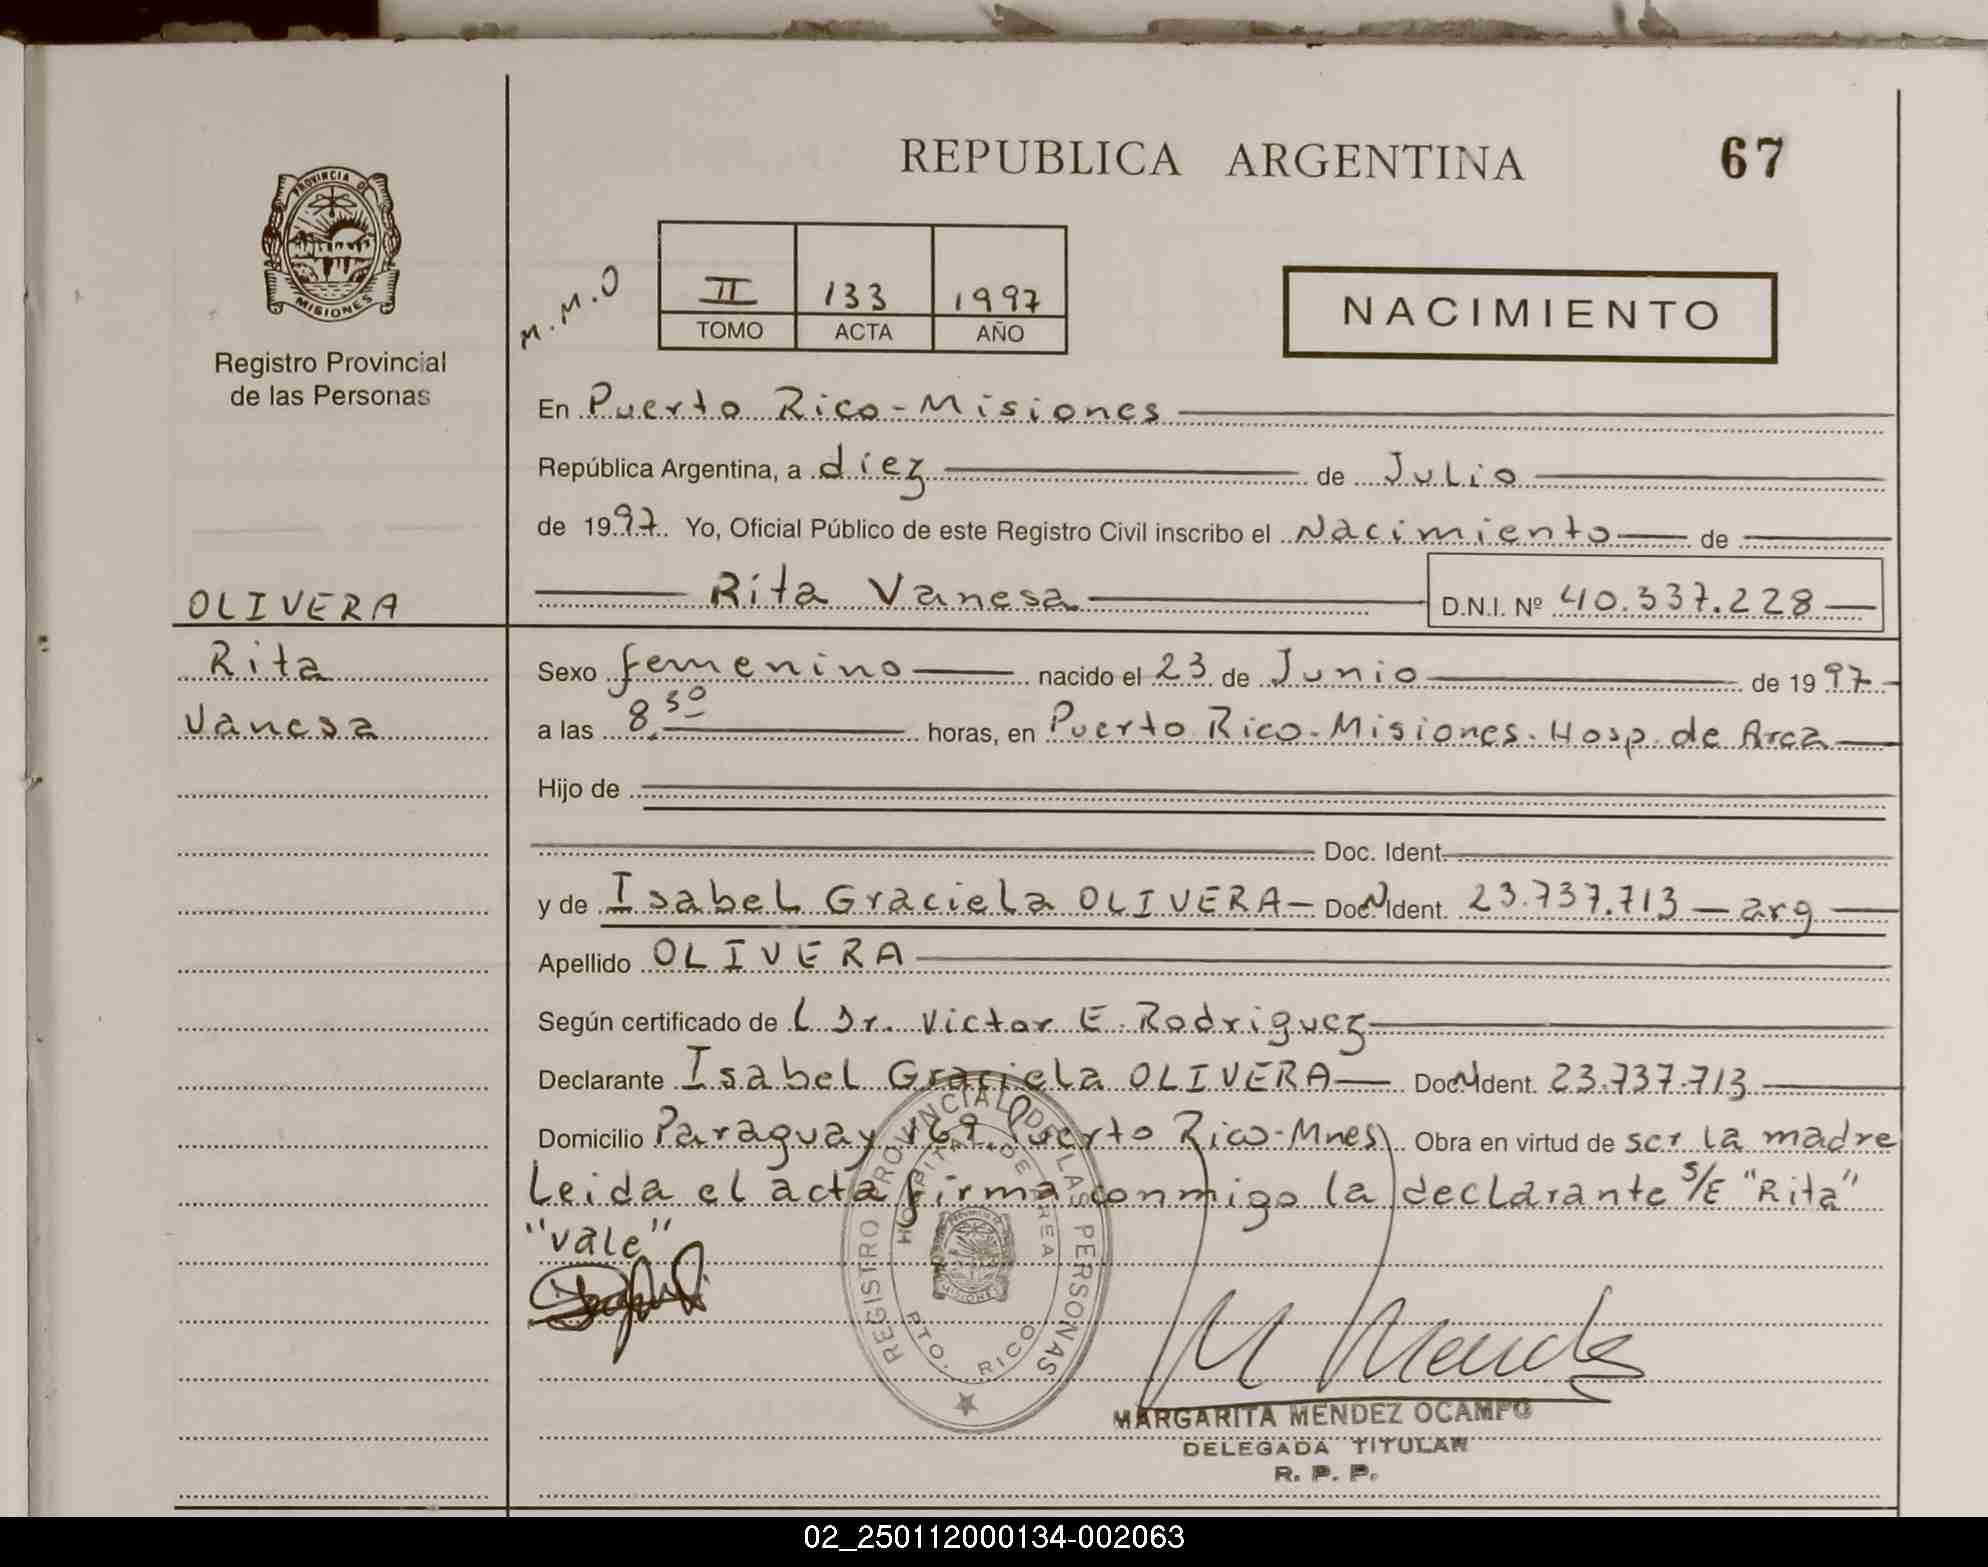 REPUBLICA ARGENTINA
67
PROVINCIA DE
MISIONES
Registro Provincial
de las Personas
M.M.O
II 133 1997
TOMO ACTA AÑO
NACIMIENTO
En Puerto Rico - Misiones
República Argentina, a diez de Julio
de 1997. Yo, Oficial Público de este Registro Civil inscribo el Nacimiento de
OLIVERA
Rita Vanesa D.N.I. Nº 40.337.228
Rita
Sexo femenino nacido el 23 de Junio de 1997
Vanesa
a las 8,30 horas, en Puerto Rico - Misiones. Hosp. de Area
Hijo de
Doc. Ident.
y de Isabel Graciela OLIVERA - Doc N Ident. 23.737.713 - arg
Apellido OLIVERA
Según certificado de l Dr. Victor E. Rodriguez
Declarante Isabel Graciela OLIVERA - Doc N Ident. 23.737.713
Domicilio Paraguay 169 Puerto Rico - Mnes Obra en virtud de ser la madre
Leida el acta firma conmigo la declarante S/E "Rita"
"vale"
REGISTRO PROVINCIAL DE LAS PERSONAS
HOSPITAL DE AREA
MISIONES
PTO. RICO
M Mendez
MARGARITA MENDEZ OCAMPO
DELEGADA TITULAR
R. P. P.
02_250112000134-002063